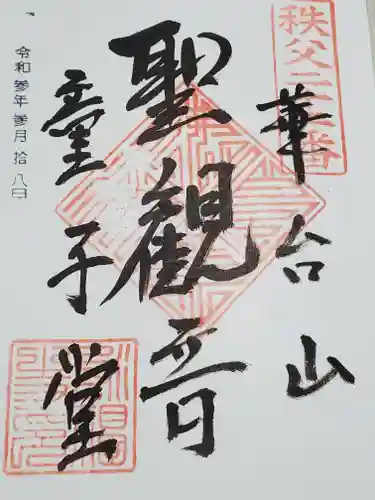 秩父二十二番
華台山
聖観音
童子堂
令和参年参月拾八日